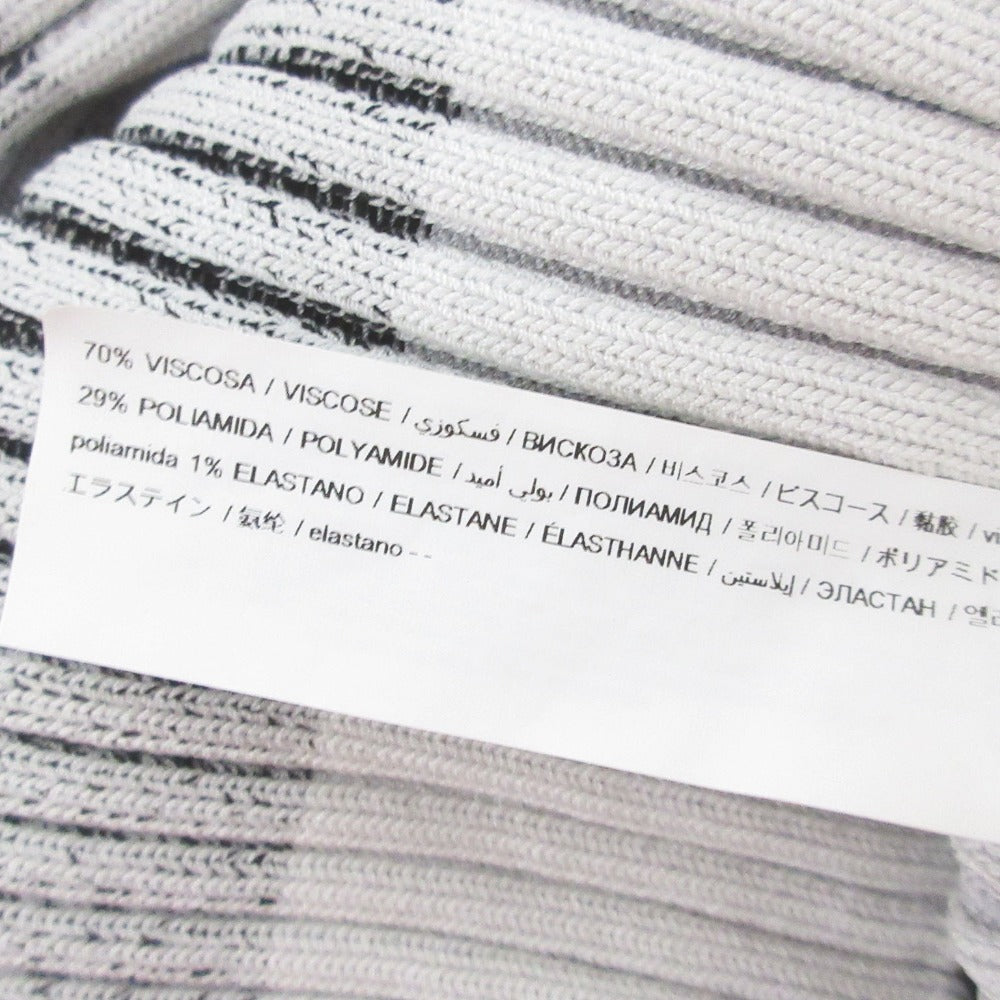 70% VISCOSA / VISCOSE / فسكوزي / ВИСКОЗА / 비스코스 / ビスコース / 黏胶 /
29% POLIAMIDA / POLYAMIDE / بولي أميد / ПОЛИАМИД / 폴리아미드 / ポリアミド
poliamida 1% ELASTANO / ELASTANE / ÉLASTHANNE / إيلاستين / ЭЛАСТАН /
エラステイン / 氨纶 / elastano - -